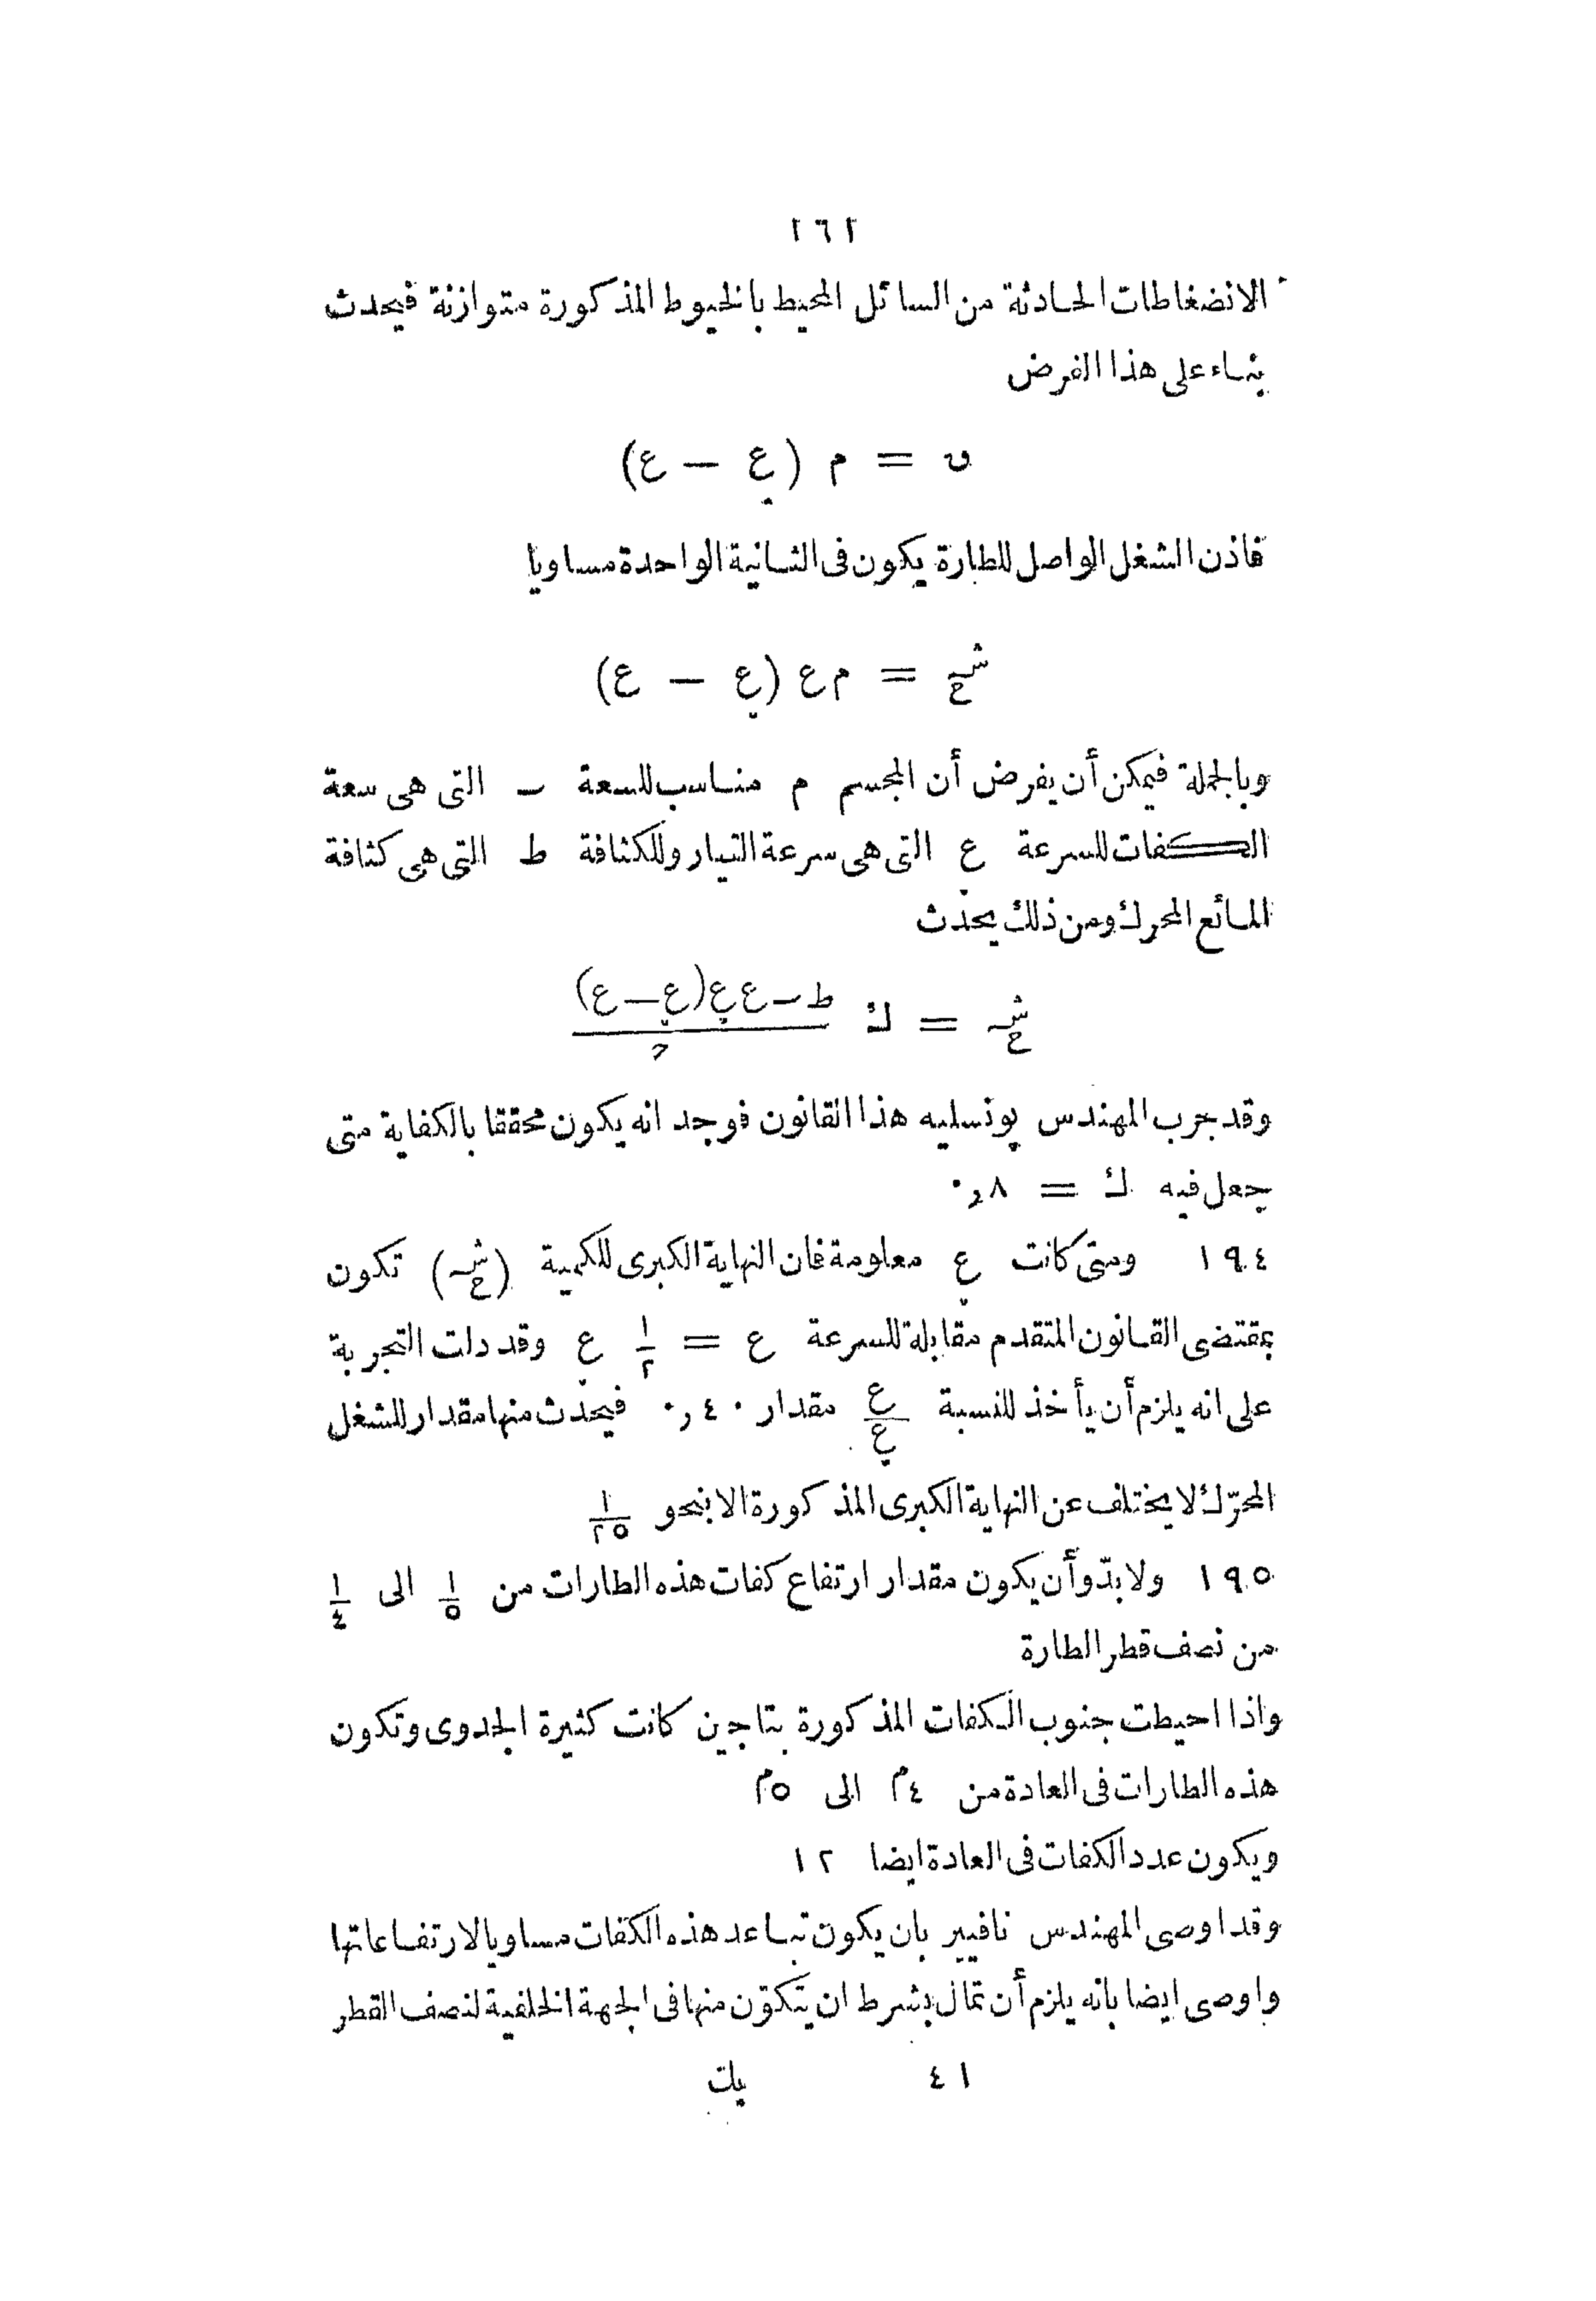 ٢٦٢
الانضغاطات الحادثة من السائل المحيط بالخيوط المذكورة متوازنة فيحدث
بناء على هذا الفرض
ں = م (عٖ − ع)
فاذن الشغل الواصل للطارة يكون فى الثانية الواحدة مساويا
شح = م ع (عٖ − ع)
وبالجملة فيمكن أن يفرض أن المجسم م مناسب للسعة ـ التى هى سعة
الكفات للسرعة عٖ التى هى سرعة التيار وللكثافة ط التى هى كثافة
المائع المحرك ومن ذلك يحدث
شح = ك ط ـ ع عٖ (عٖ − ع) / ح
وقد جرب المهندس پونسليه هذا القانون فوجد انه يكون محققا بالكفاية متى
جعل فيه ك = ٠,٨
١٩٤ ومتى كانت عٖ معلومة فان النهاية الكبرى للكمية (شح) تكون
بمقتضى القانون المتقدم مقابلة للسرعة ع = ١/٢ عٖ وقد دلت التجربة
على انه يلزم أن يأخذ للنسبة ع/عٖ مقدار ٠,٤٠ فيحدث منها مقدار للشغل
المحرّك لا يختلف عن النهاية الكبرى المذكورة الا بنحو ١/٢٥
١٩٥ ولا بدّ وأن يكون مقدار ارتفاع كفات هذه الطارات من ١/٥ الى ١/٤
من نصف قطر الطارة
واذا احيطت جنوب الكفات المذكورة بتاجين كانت كثيرة الجدوى وتكون
هذه الطارات فى العادة من ٤م الى ٥م
ويكون عدد الكفات فى العادة ايضا ١٢
وقد اوصى المهندس نافيير بان يكون تباعد هذه الكفات مساويا لارتفاعاتها
واوصى ايضا بانه يلزم أن تمال بشرط ان يتكوّن منها فى الجهة الخلفية لنصف القطر
٤١ يك